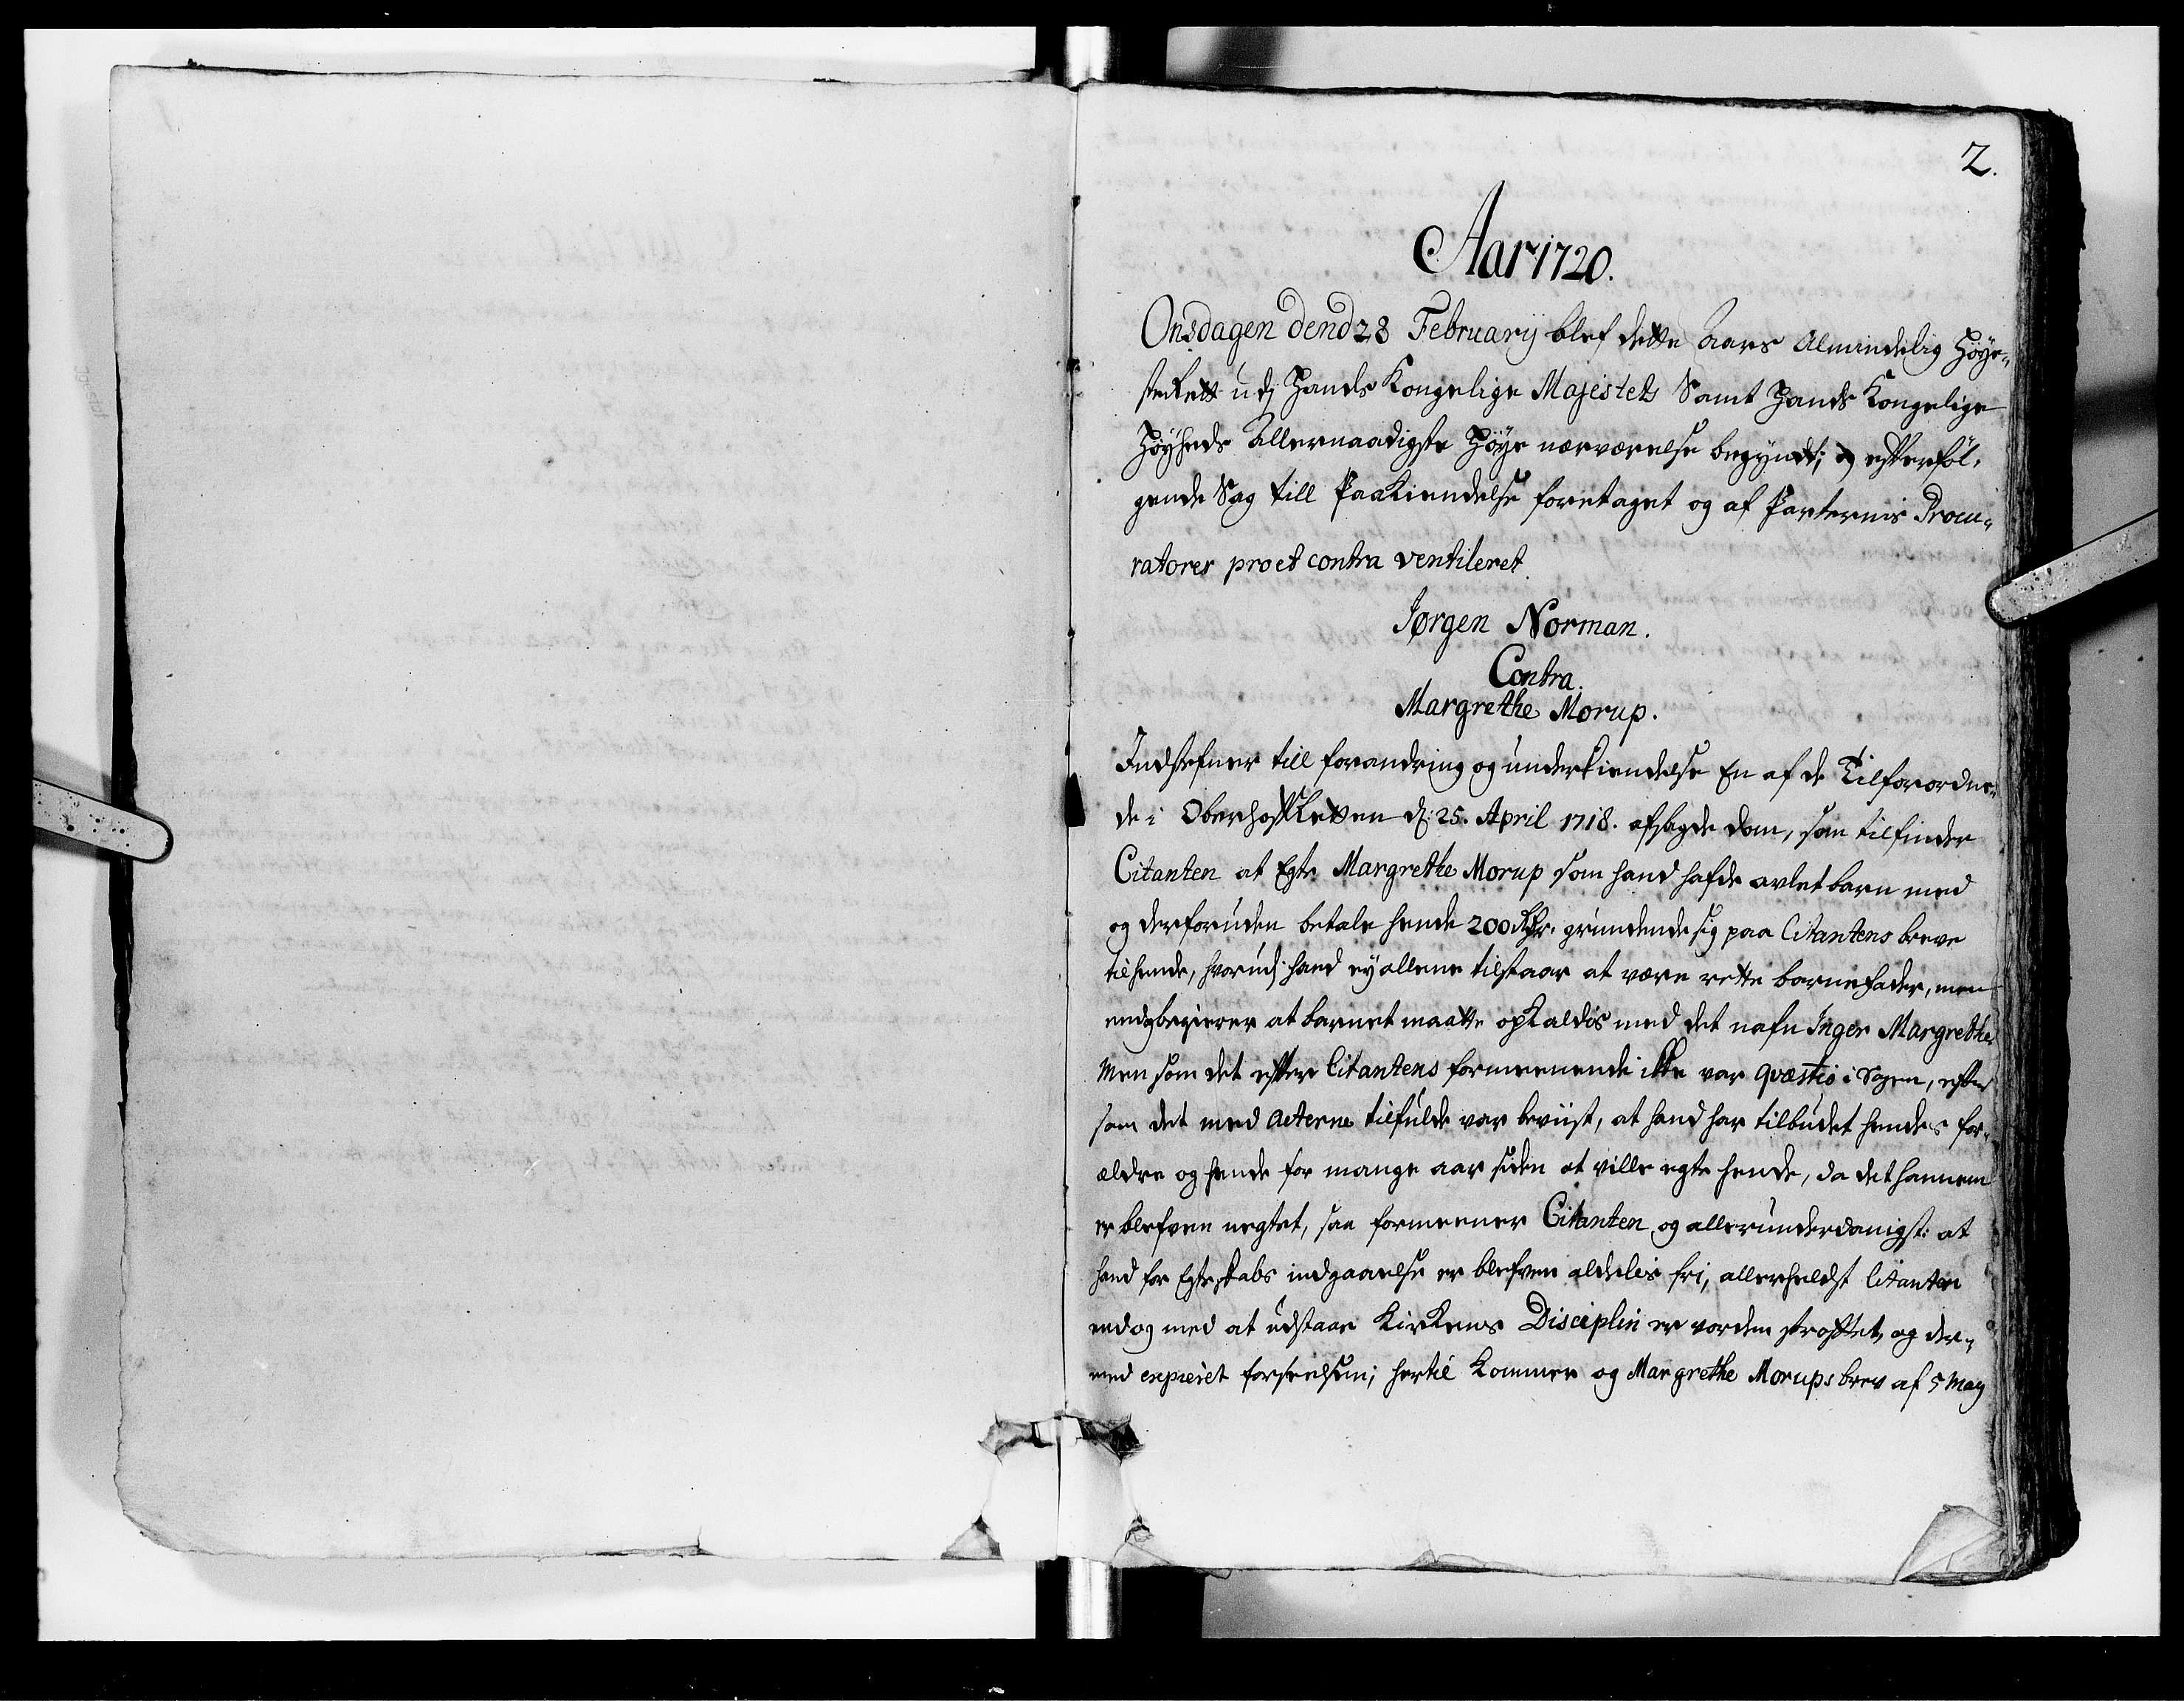 2.
Aar 1720.
Onsdagen dend 28 Februarij blef dette Aars Almindelig Høye-
ste Rett udj Hands Kongelige Majestets Samt Hands Kongelige
Høyheds Allernaadigste Høye nærværelse begyndt; og efterføl-
gende Sag till Paakiendelse foretaget og af Parternis Procu-
ratorer pro et contra ventileret
Jørgen Norman.
Contra.
Margrethe Morup.
Indstefner till forandring og underkiendelse En af de Tilforordne-
de i Oberhoff Retten d: 25. April 1718. afsagde dom, som tilfinder
Citanten at Egte Margrethe Morup som hand hafde avlet barn med
og derforuden betale hende 200 Rdr. grundende sig paa Citantens breve
til hende, hvorudj hand ey allene tilstaar at være rette barnefader, men
endog begierer at barnet maatte opkaldis med det nafn Inger Margrethe,
Men som det efter Citantens formeenende ikke var qvæstio i Sagen, efter
som det med Acterne tilfulde var beviist, at hand har tilbudet hendes for-
ældre og hende for mange aar siden at ville egte hende, da det hannem
er blefven negtet, saa formeener Citanten og allerunderdanigst: at
hand for Egteskabs indgaaelse er blefven aldelis fri, allerheldst Citanten
endog med at udstaae Kirkens Disciplin er vorden straffet, og der-
med expieret forseelsen; hertil kommer og Margrethe Morups brev af 5 May